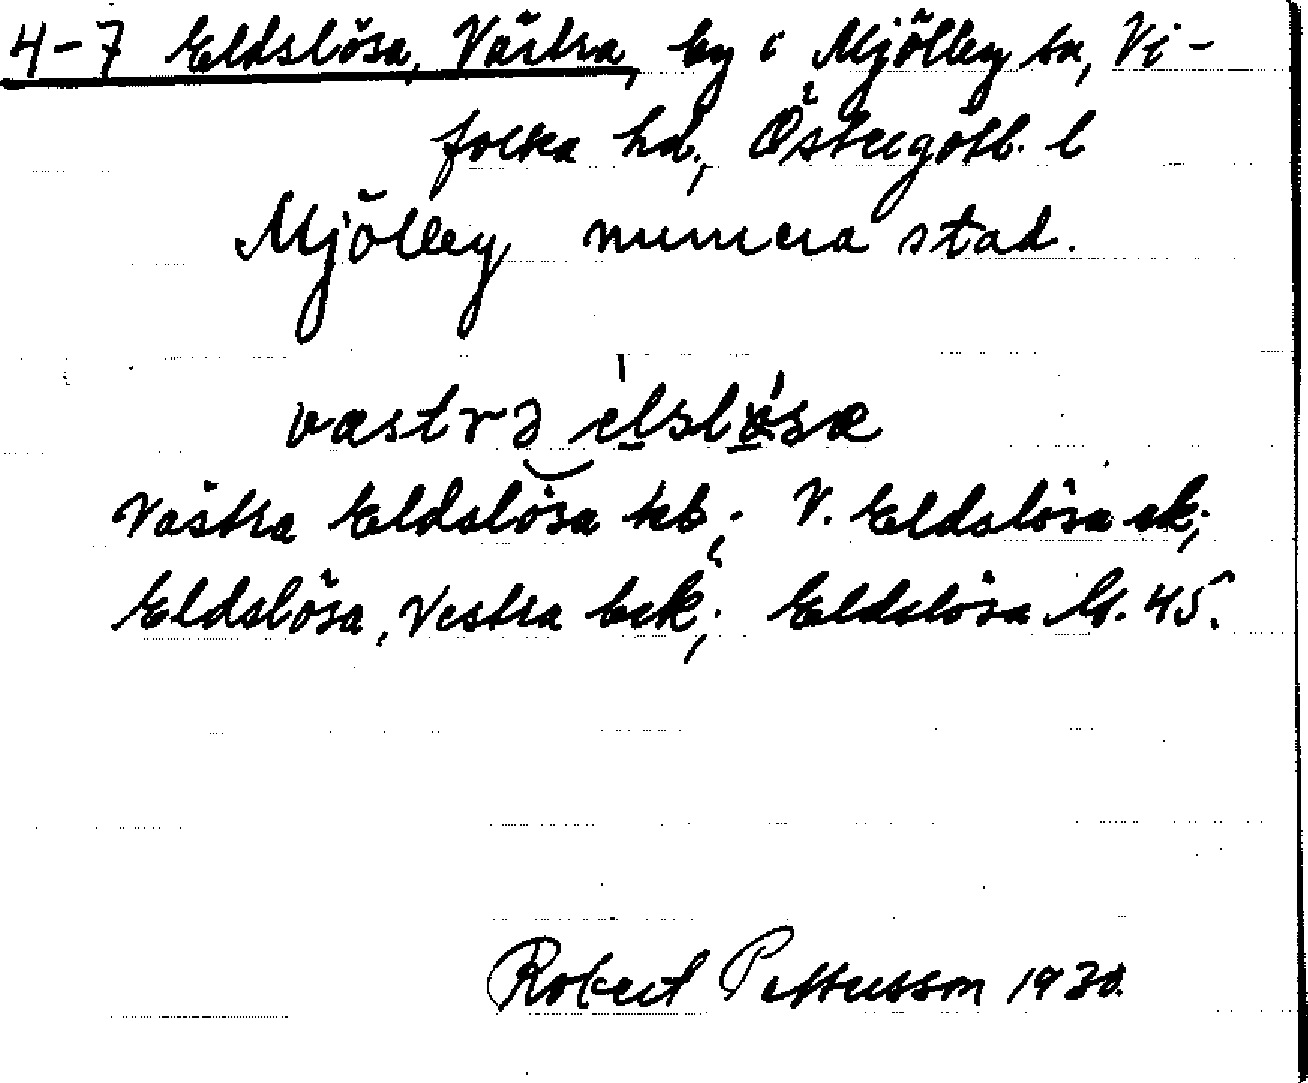 4-7 Eldslösa, Västra, by i Mjölby sn, Vi-
folka hd., Östergötl. l
Mjölby numera stad.
västrə elslösa
Västra Eldslösa kb; V. Eldslösa ek;
Eldslösa, Vestra bek; Eldslösa Gs. 45.
Robert Pettersson 1930.